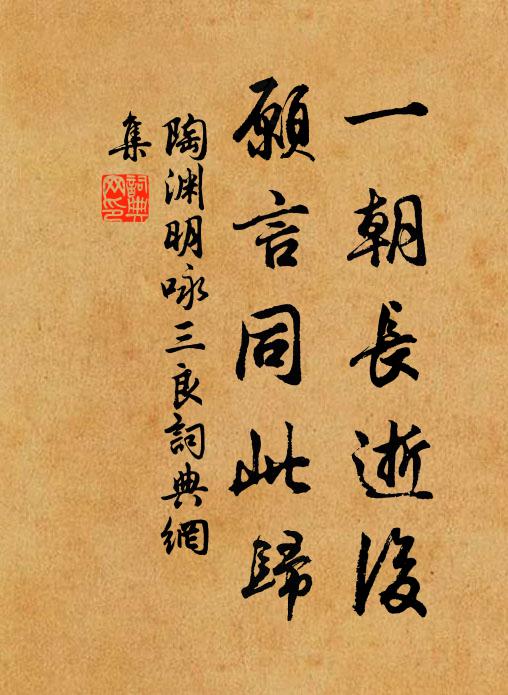 一朝長逝後
願言同此歸
陶渊明咏三良詞典網
集
詞典網印